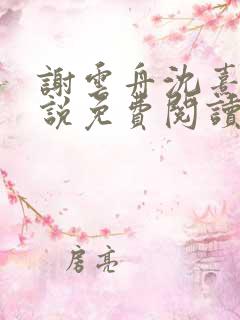 謝雲舟沈熹
說免費閱讀
房亮